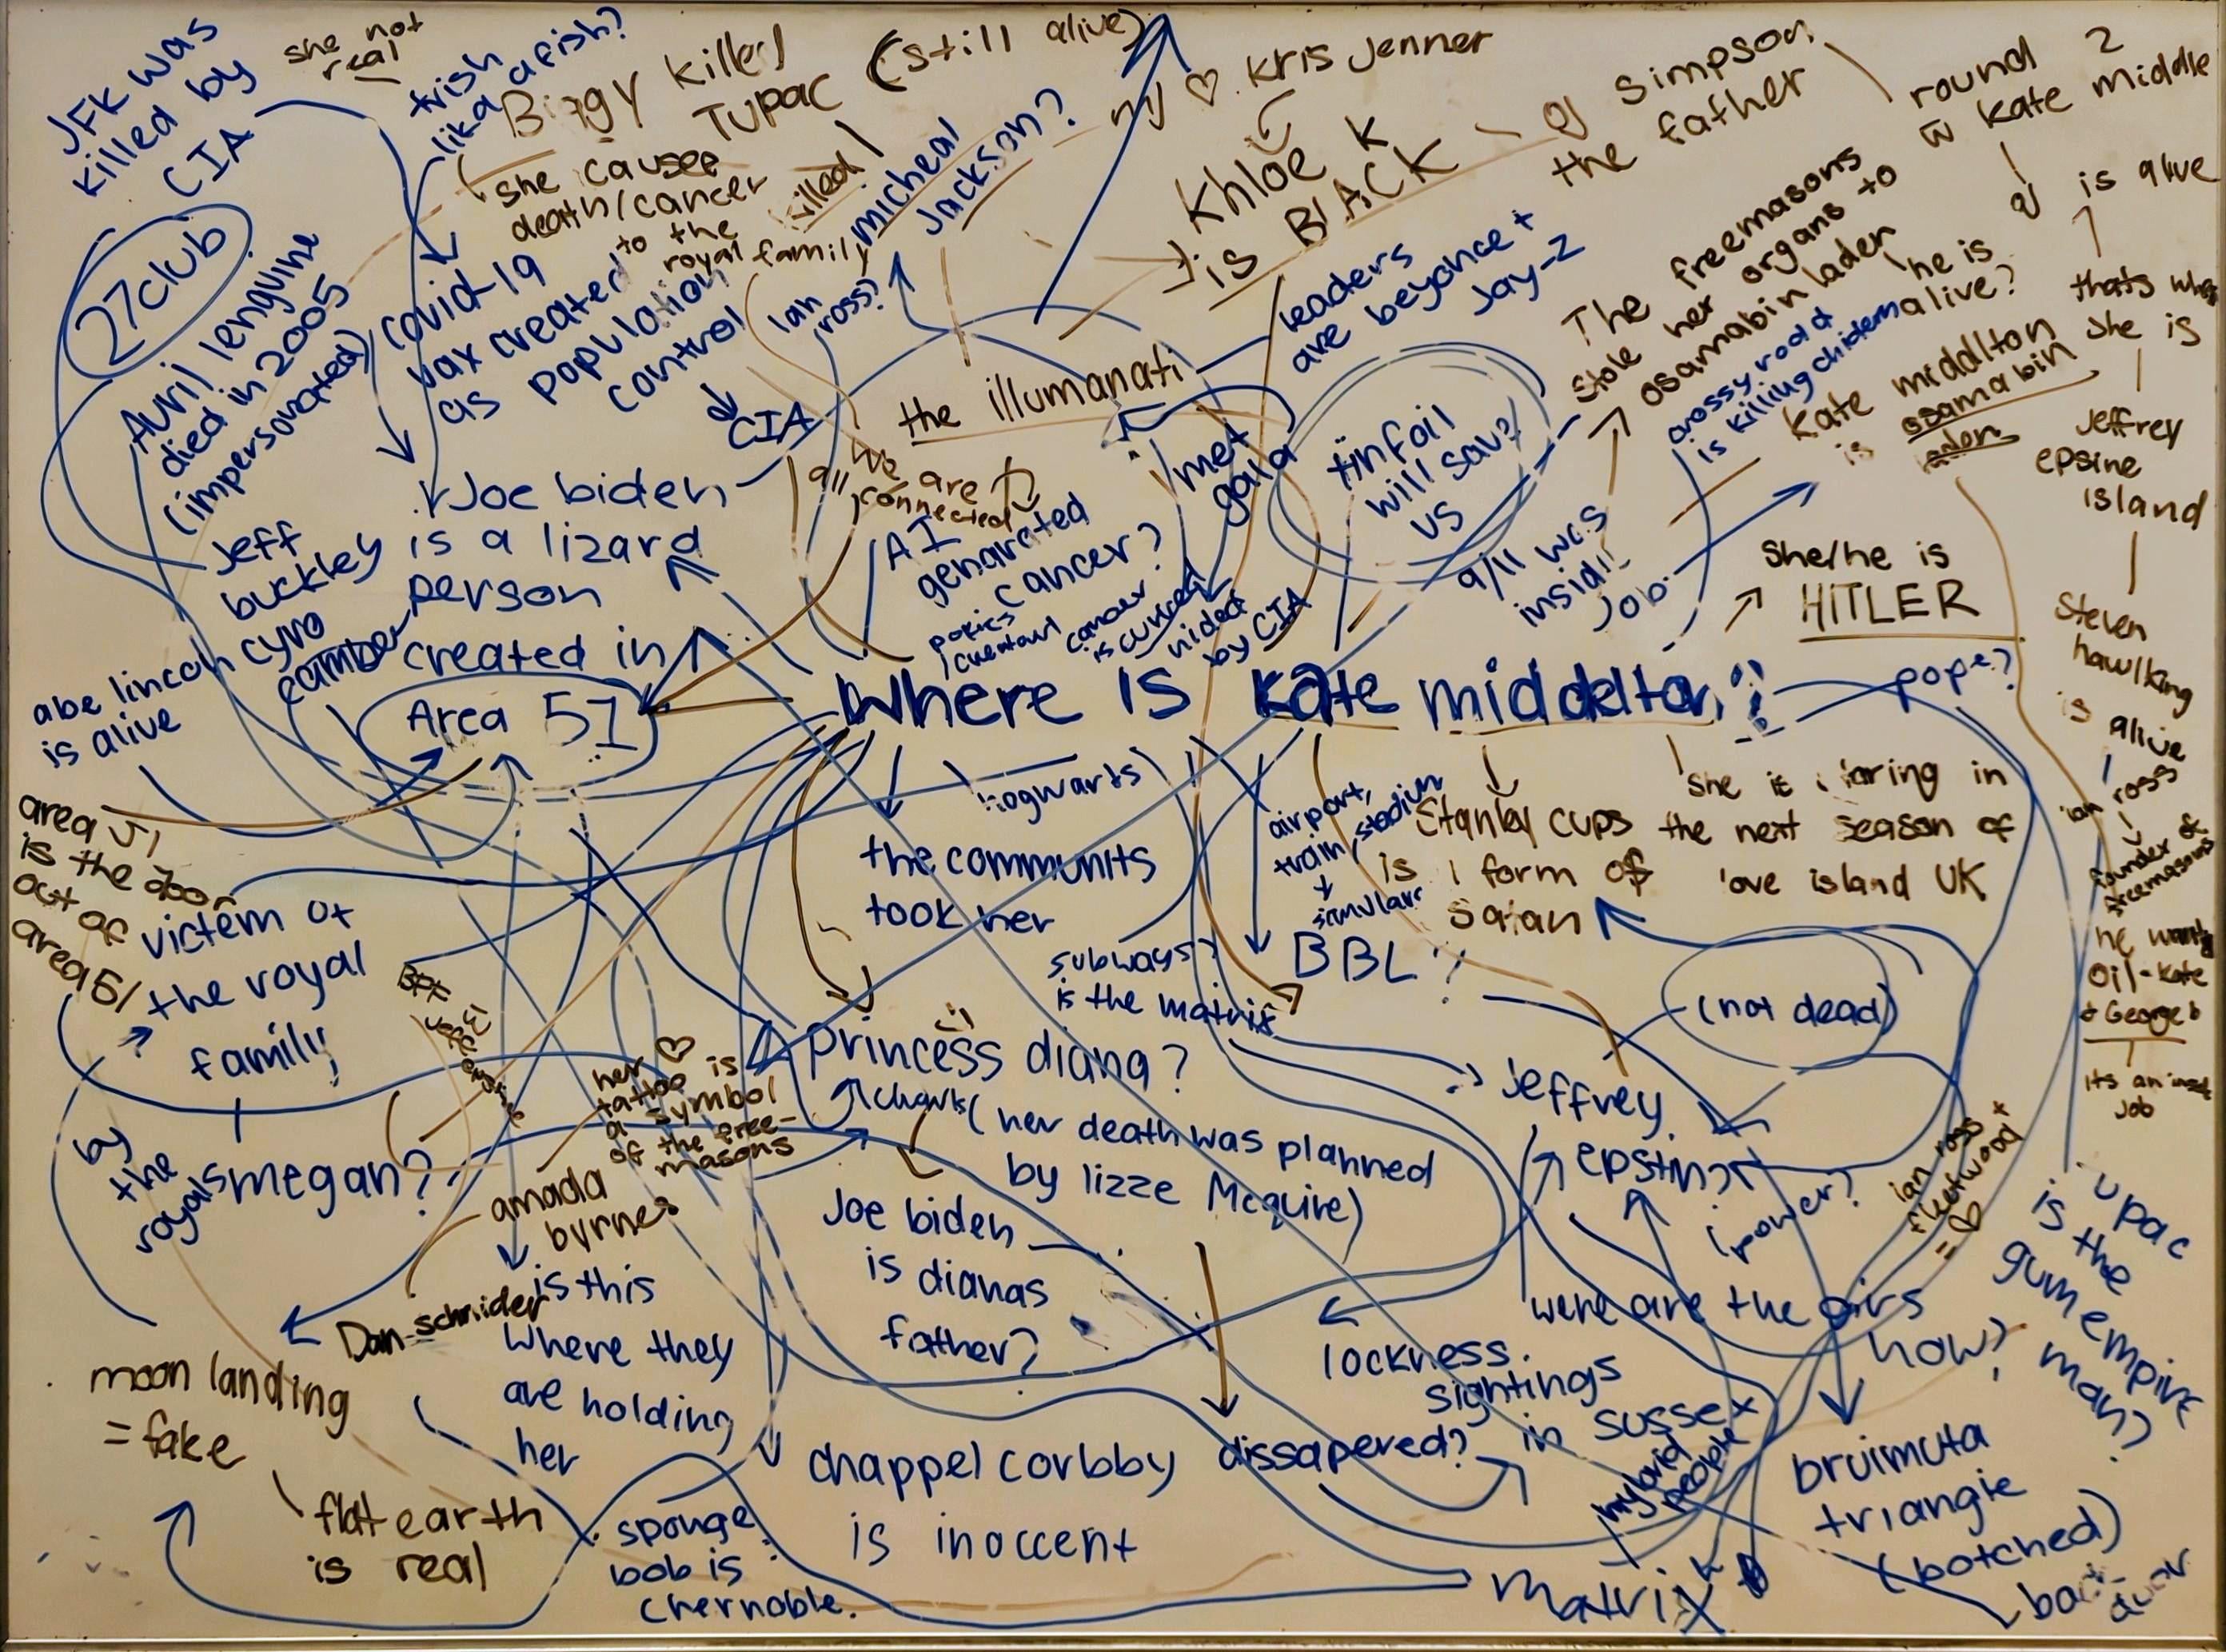 JFK was
killed by
CIA
she not
real
trish
like a fish?
Biggy killed
Tupac (still alive)
she causee
death/cancer
to the
royal family
killed
micheal
Jackson?
Ian
ross?
my ♡ Kris Jenner
Khloe K
is BlACK
oj simpson
the father
round 2
w Kate middle
oj is alive
27club
Avril lenguine
died in 2005
(impersonated)
covid-19
vax created
as population
control
CIA
the illumanati
leaders
are beyonce +
Jay-Z
The freemasons
stole her organs to
osamabin laden
he is
alive?
crossy road
is killing chidema
thats why
she is
Kate middlton
is osama bin
laden
Jeffrey
epsine
island
Jeff
buckley
cyro
camber
Joe biden
is a lizard
person
created in
Area 51
we are
all connected
AI
genarated
cancer?
cancer
is cured
hided
by CIA
met
gala
tinfoil
will sav?
us
9/11 was
inside
Job
she/he is
HITLER
Steven
hawlking
is alive
ian ross
founder of
freemasons
he wants
oil-kate
+ George b
its an insid
Job
abe lincoln
is alive
Where is kate middelton?
pope?
hogwarts
the communits
took her
airport,
train, stadium
+
simular
Stanley cups
is 1 form of
Satan
she is staring in
the next season of
love island UK
area 51
is the door
out of
area 51
victem of
the royal
family
by
the
royals
megan?
BFF
subways?
is the matrix
BBL?
(not dead)
princess diana?
(her death was planned
by lizze Mcquire)
her ♡
tattoo is
a symbol
of the free-
masons
amada
byrnes
Dan-schnider
is this
where they
are holding
her
Joe biden
is dianas
father?
Jeffrey
epstin?
(power?
ian ross +
fleetwood
= ♡
were are the girs
how?
lockness
sightings
in sussex
hybrid
people
upac
is the
gum empire
man?
moon landing
= fake
flat earth
is real
sponge
bob is
chernoble.
chappel corbby dissapered?
is inoccent
matrix
bruimuta
triangle
(botched)